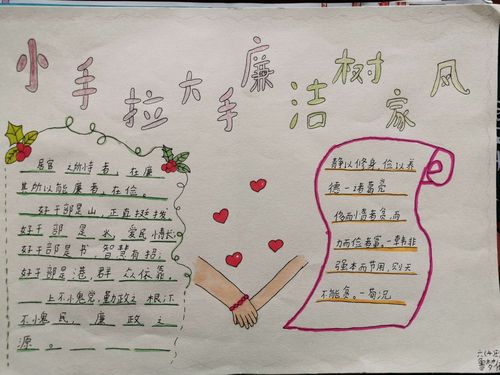 小手拉大手 廉洁树家风
居官之所恃者，在廉
其所以能廉者，在俭。
好干部是山，正直挺拨
好干部是水，爱民情长；
好干部是书，智慧有招；
好干部是港，群众依靠
上不愧党，勤政之根江
不愧民，廉政之
源。
静以修身，俭以养
德－诸葛亮
侈而惰者贫，而
力而俭者富，－韩非
强本而节用，则天
不能贫。－荀况